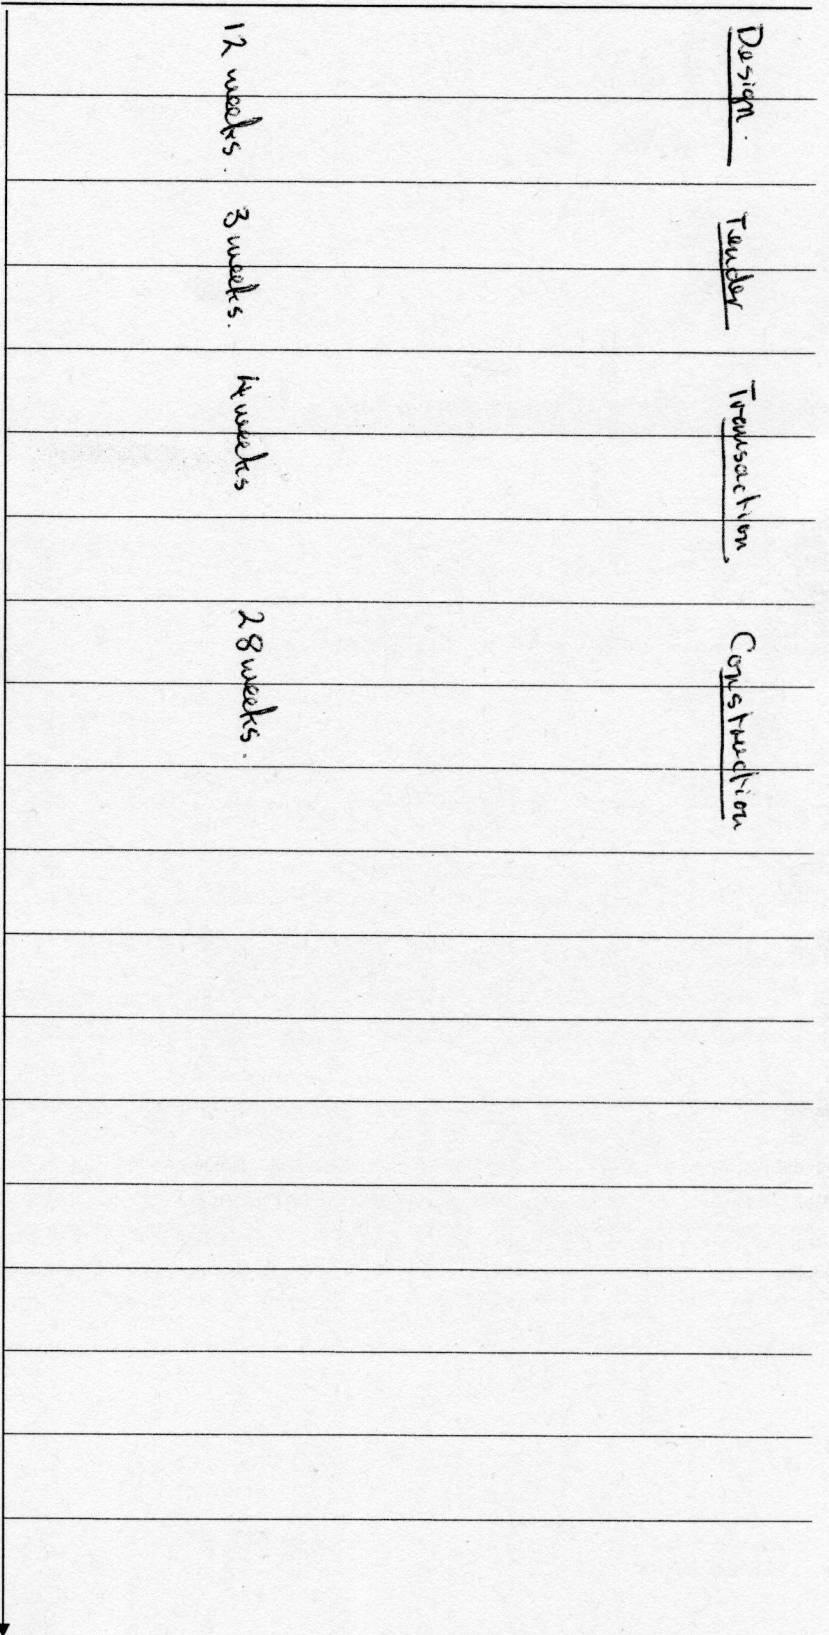 Design.
Tender
Transaction
Construction
12 weeks.
3 weeks.
4 weeks
28 weeks.